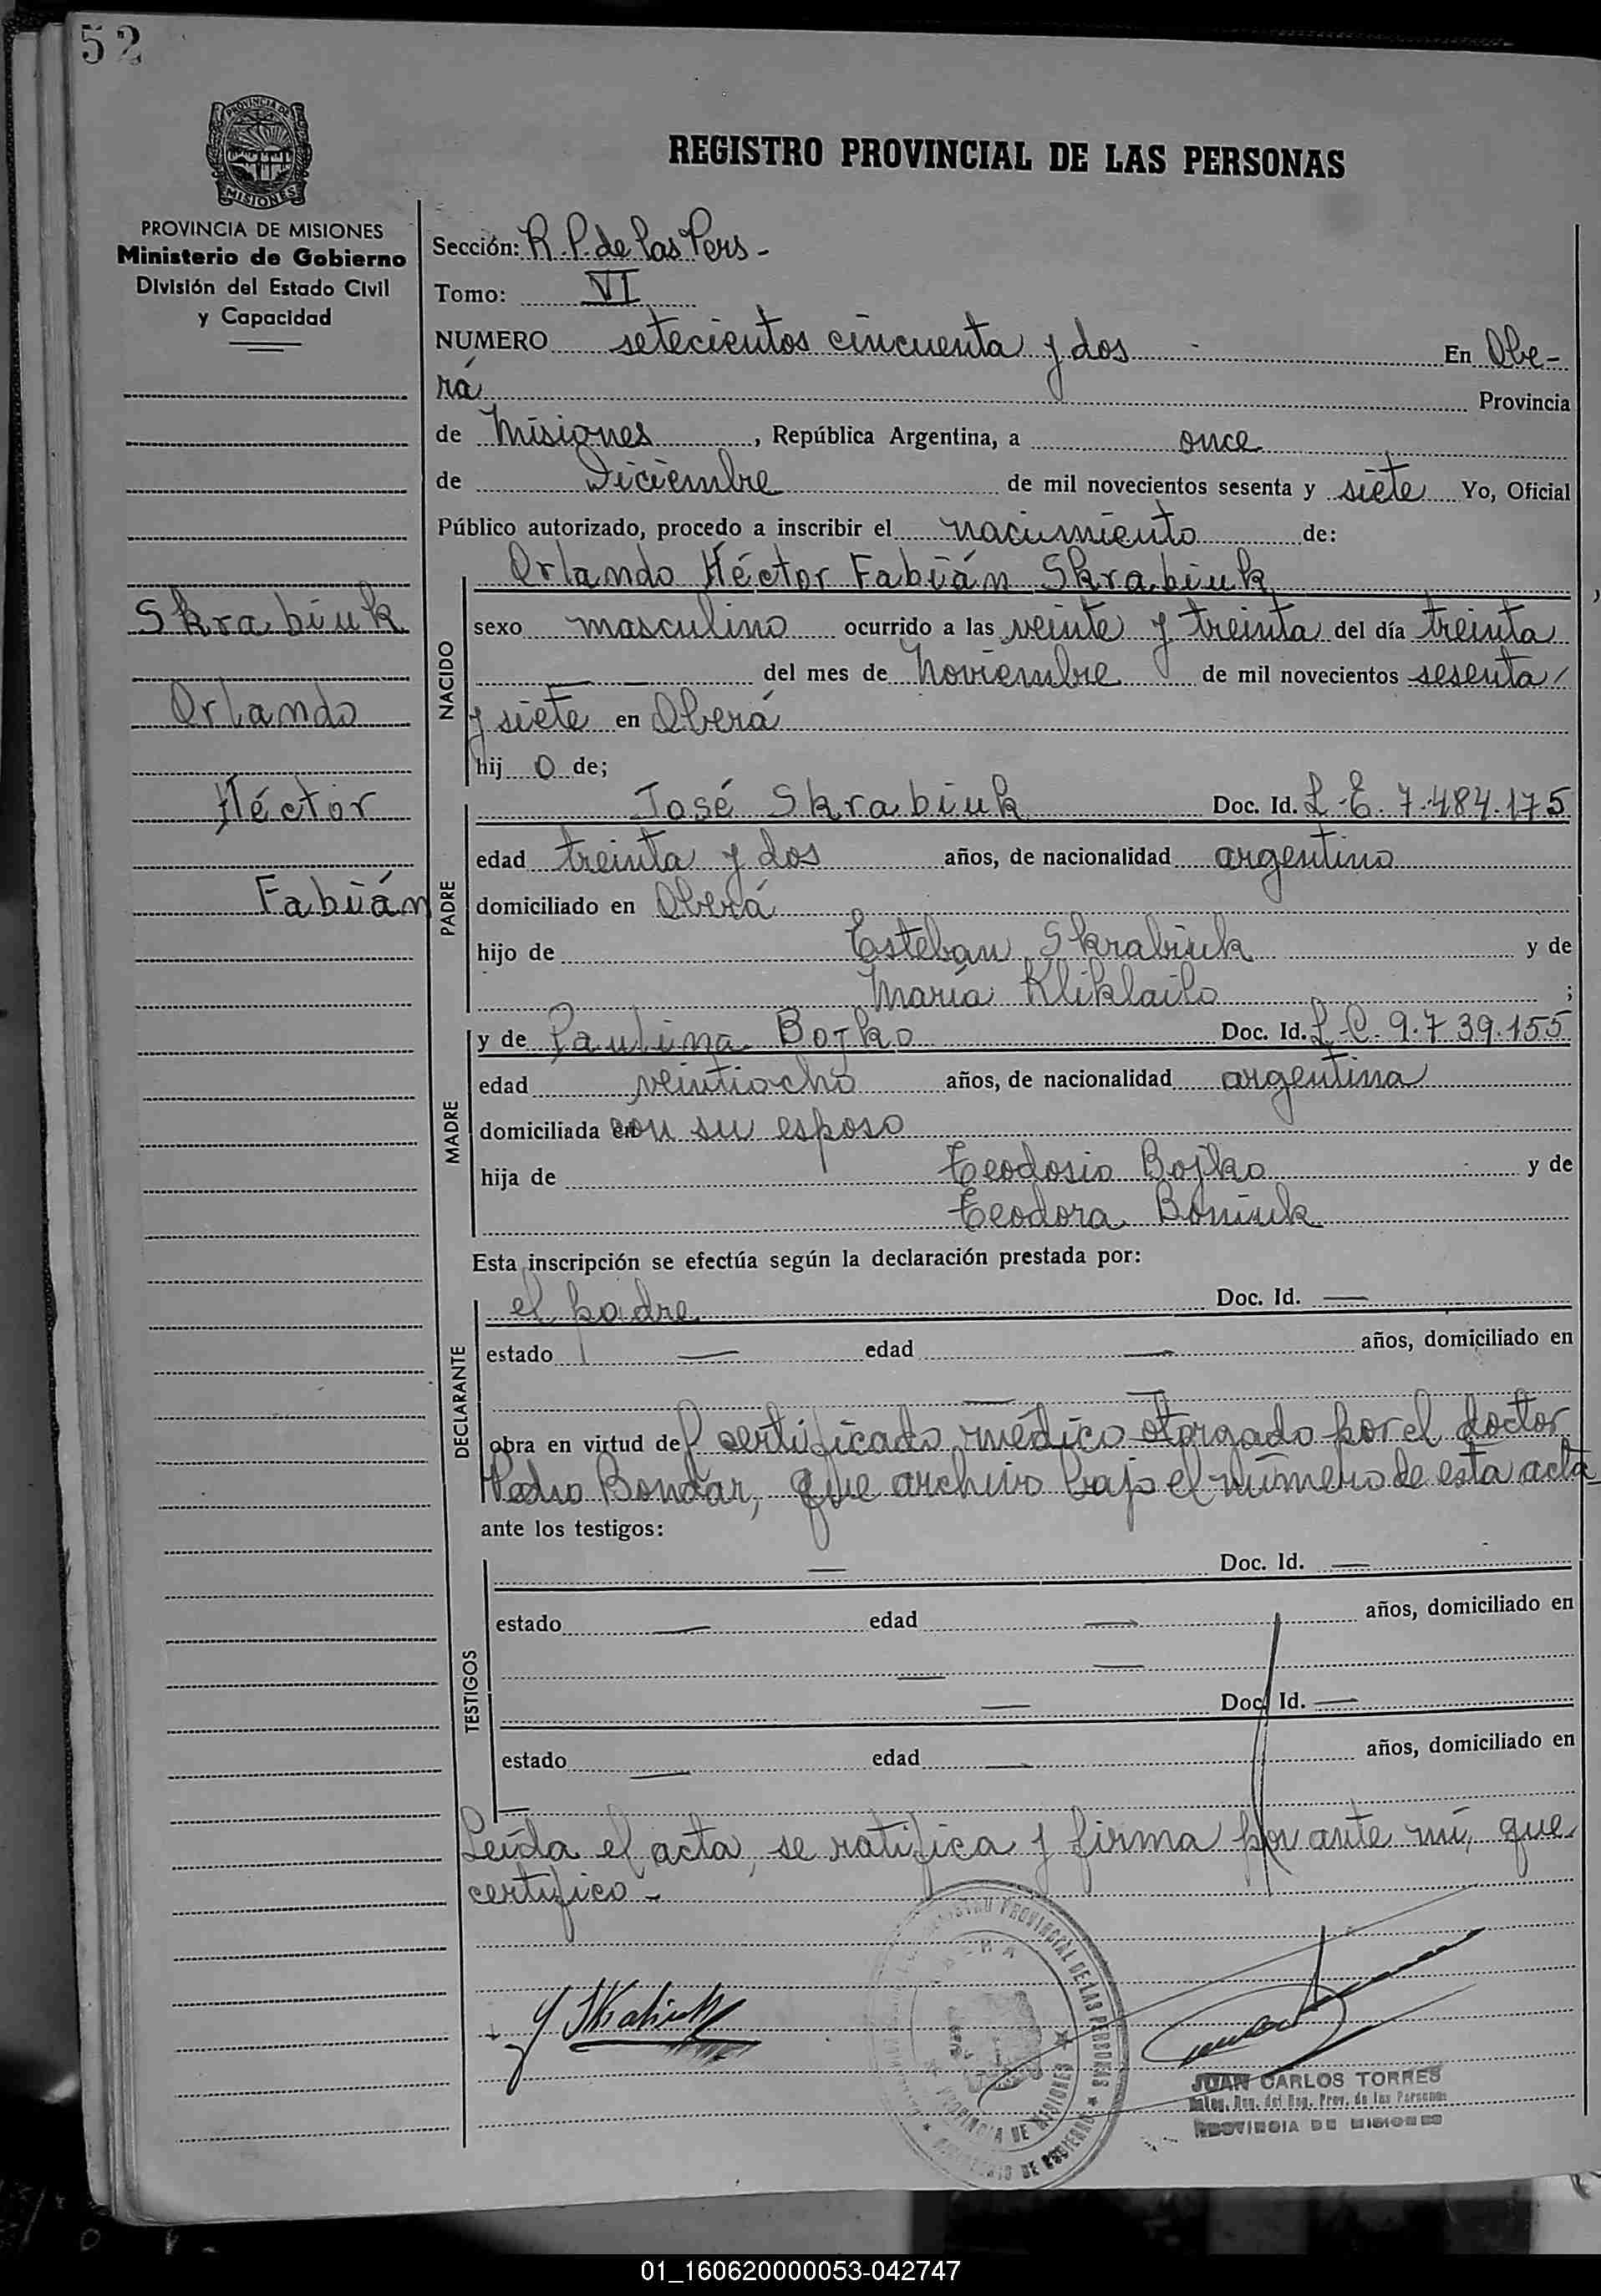 52
PROVINCIA DE
MISIONES
PROVINCIA DE MISIONES
Ministerio de Gobierno
División del Estado Civil
y Capacidad
Skrabiuk
Orlando
Héctor
Fabián
REGISTRO PROVINCIAL DE LAS PERSONAS
Sección: R. P. de las Pers -
Tomo: VI
NUMERO setecientos cincuenta y dos En Obe-
rá Provincia
de Misiones, República Argentina, a once
de Diciembre de mil novecientos sesenta y siete Yo, Oficial
Público autorizado, procedo a inscribir el nacimiento de:
NACIDO
Orlando Héctor Fabián Skrabiuk
sexo masculino ocurrido a las veinte y treinta del día treinta
del mes de Noviembre de mil novecientos sesenta
y siete en Oberá
hij o de;
PADRE
José Skrabiuk Doc. Id. L.E. 7.484.175
edad treinta y dos años, de nacionalidad argentino
domiciliado en Oberá
hijo de Esteban Skrabiuk y de
María Kliklailo ;
MADRE
y de Paulina Bojko Doc. Id. L.C. 9.739.155
edad veintiocho años, de nacionalidad argentina
domiciliada en con su esposo
hija de Teodosio Bojko y de
Teodora Boniuk
Esta inscripción se efectúa según la declaración prestada por:
DECLARANTE
el padre Doc. Id. —
estado — edad — años, domiciliado en
— —
obra en virtud del certificado médico otorgado por el doctor
Pedro Bondar, que archivo bajo el número de esta acta
ante los testigos:
TESTIGOS
— Doc. Id. —
estado — edad — años, domiciliado en
— —
— Doc. Id. —
estado — edad — años, domiciliado en
—
Leída el acta, se ratifica y firma por ante mí, que
certifico -
J Skrabiuk
REGISTRO PROVINCIAL DE LAS PERSONAS
PROVINCIA DE MISIONES
JUAN CARLOS TORRES
Reg. Prov. de las Personas
PROVINCIA DE MISIONES
01_160620000053-042747